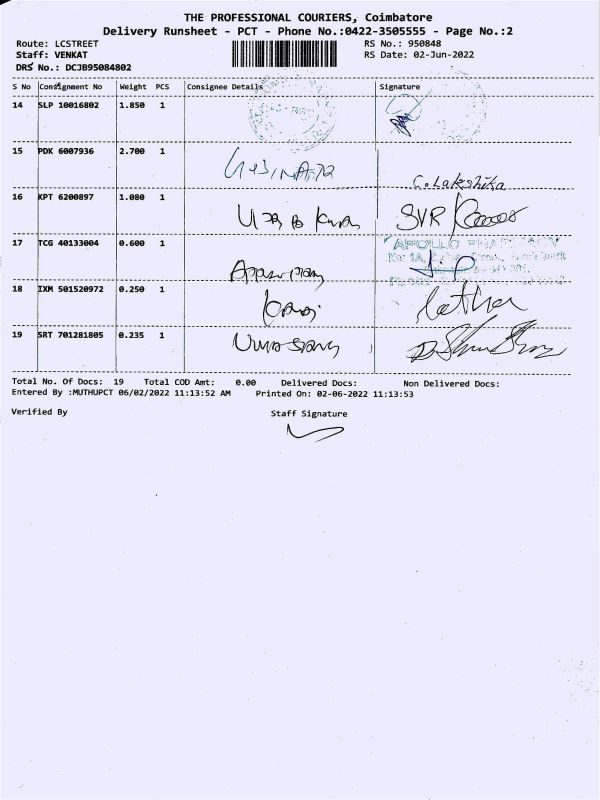 THE PROFESSIONAL COURIERS, Coimbatore
Delivery Runsheet - PCT - Phone No.:0422-3505555 - Page No.:2
Route: LCSTREET RS No.: 950848
Staff: VENKAT RS Date: 02-Jun-2022
DRS No.: DCJB95084802
S No Consignment No Weight PCS Consignee Details Signature
14 SLP 10016802 1.850 1
15 PDK 6007936 2.700 1
C. Lakshika
16 KPT 6200897 1.080 1
SVR
17 TCG 40133004 0.600 1
APOLLO PHARMACY
18 IXM 501520972 0.250 1
latha
19 SRT 701281805 0.235 1
Total No. Of Docs: 19 Total COD Amt: 0.00 Delivered Docs: Non Delivered Docs:
Entered By :MUTHUPCT 06/02/2022 11:13:52 AM Printed On: 02-06-2022 11:13:53
Verified By Staff Signature